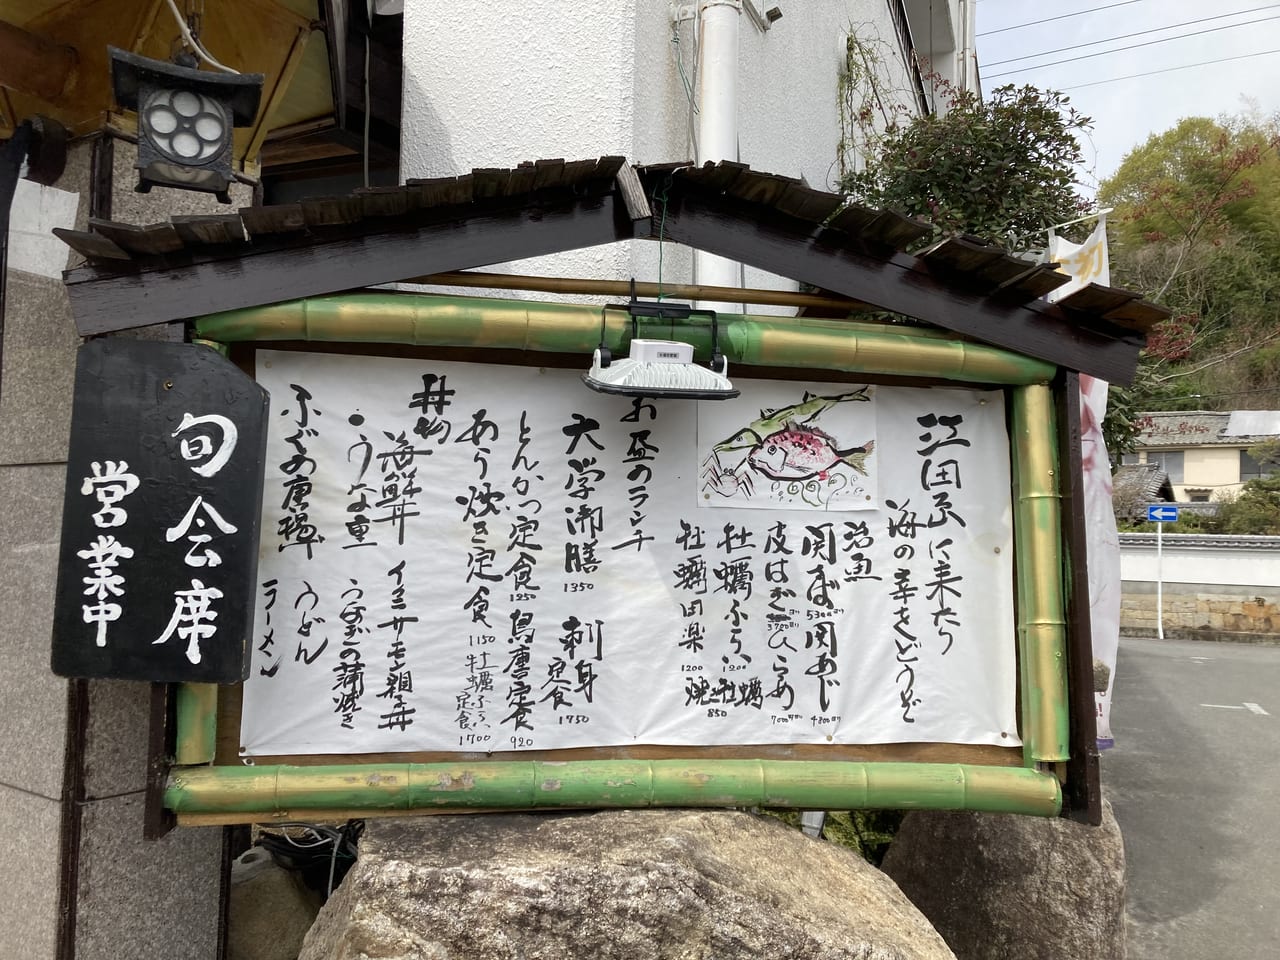 江田島に来たら
海の幸をどうぞ
活魚
関さば 5300より 関あじ 4800より
皮はぎ 3700より ひらめ 7000より
牡蠣ふらい 1200 焼き牡蠣 850
牡蠣田楽 1200
お昼のランチ
大学御膳 1350 刺身定食 1750
とんかつ定食 1250 鳥唐定食 920
あら炊き定食 1150 牡蠣ふらい定食 1700
丼物
海鮮丼 イクラサーモン親子丼
・うな重 うなぎの蒲焼き
ふぐの唐揚げ うどん
ラーメン
旬会席
営業中